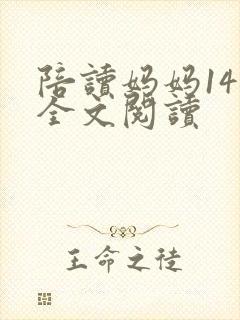 陪讀妈妈14
全文閱讀
王命之徒